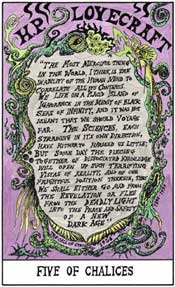 HP LOVECRAFT
"THE MOST MERCIFUL THING
IN THE WORLD, I THINK, IS THE
INABILITY OF THE HUMAN MIND TO
CORRELATE ALL ITS CONTENTS.
WE LIVE ON A PLACID ISLAND OF
IGNORANCE IN THE MIDST OF BLACK
SEAS OF INFINITY, AND IT WAS NOT
MEANT THAT WE SHOULD VOYAGE
FAR. THE SCIENCES, EACH
STRAINING IN ITS OWN DIRECTION,
HAVE HITHERTO HARMED US LITTLE;
BUT SOME DAY THE PIECING
TOGETHER OF DISSOCIATED KNOWLEDGE
WILL OPEN UP SUCH TERRIFYING
VISTAS OF REALITY, AND OF OUR
FRIGHTFUL POSITION THEREIN, THAT
WE SHALL EITHER GO MAD FROM
THE REVELATION OR FLEE
FROM THE DEADLY LIGHT
INTO THE PEACE AND SAFETY
OF A NEW
DARK AGE."
FIVE OF CHALICES